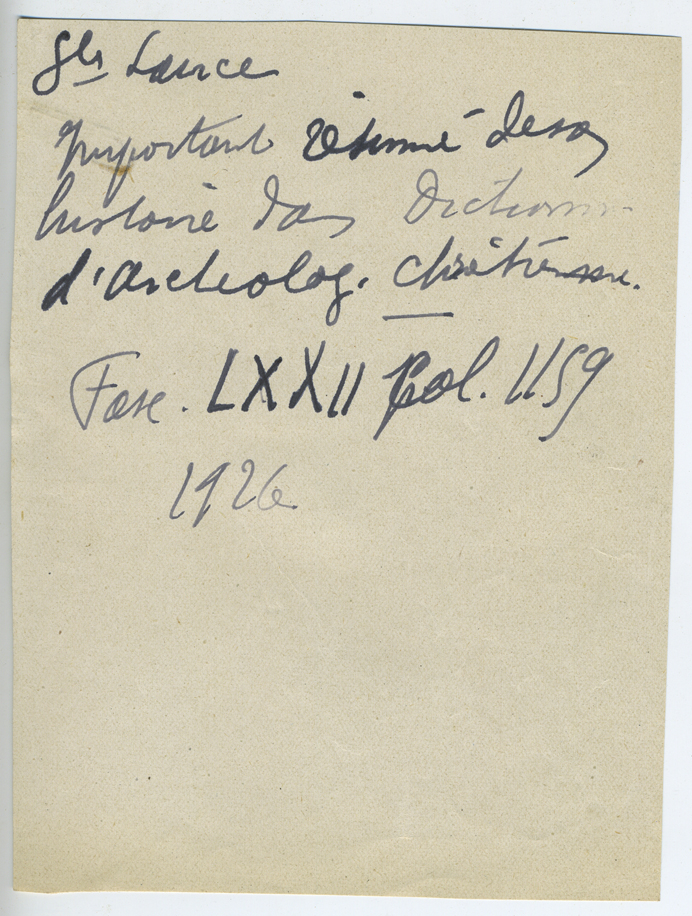 Ste Lance
Important résumé de son
histoire dans Dictionn.
d'archeolog. chrétienne.
Fasc. LXXII Col. 1159
1926